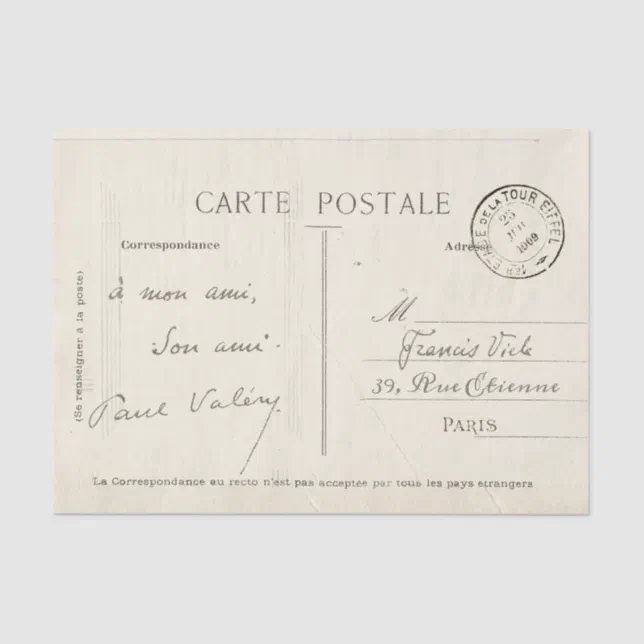 CARTE POSTALE
1ER ETAGE DE LA TOUR EIFFEL
25
JUI
1909
Correspondance
Adresse
(Se renseigner à la poste)
à mon ami,
Son ami.
Paul Valéry
M
Francis Viele
39, Rue Etienne
PARIS
La Correspondance au recto n'est pas acceptée par tous les pays etrangers